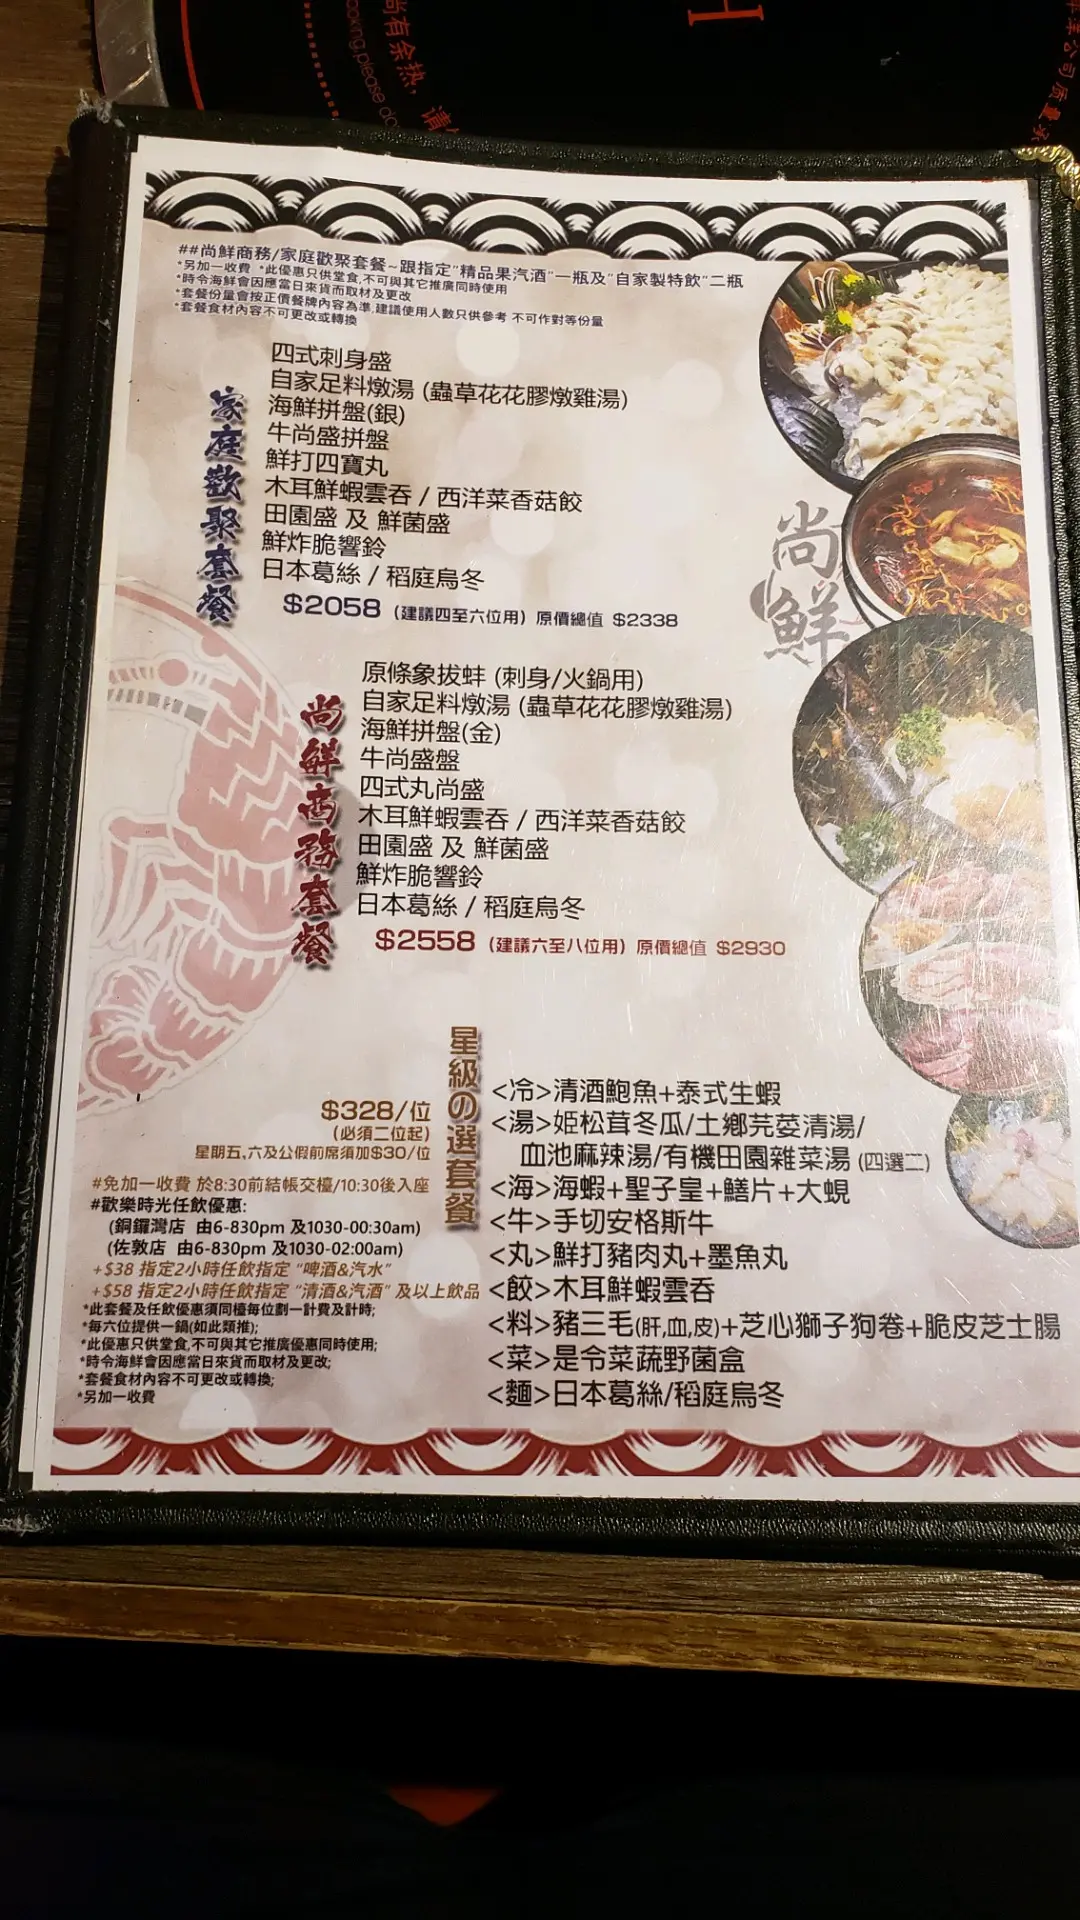 尚有余热，请
ooking,please do
H
##尚鮮商務/家庭歡聚套餐~跟指定"精品果汽酒"一瓶及"自家製特飲"二瓶
*另加一收費 *此優惠只供堂食,不可與其它推廣同時使用
*時令海鮮會因應當日來貨而取材及更改
*套餐份量會按正價餐牌內容為準,建議使用人數只供參考 不可作對等份量
*套餐食材內容不可更改或轉換
家庭歡聚套餐
四式刺身盛
自家足料燉湯 (蟲草花花膠燉雞湯)
海鮮拼盤(銀)
牛尚盛拼盤
鮮打四寶丸
木耳鮮蝦雲吞 / 西洋菜香菇餃
田園盛 及 鮮菌盛
鮮炸脆響鈴
日本葛絲 / 稻庭烏冬
$2058 (建議四至六位用) 原價總值 $2338
尚鮮
尚鮮商務套餐
原條象拔蚌 (刺身/火鍋用)
自家足料燉湯 (蟲草花花膠燉雞湯)
海鮮拼盤(金)
牛尚盛盤
四式丸尚盛
木耳鮮蝦雲吞 / 西洋菜香菇餃
田園盛 及 鮮菌盛
鮮炸脆響鈴
日本葛絲 / 稻庭烏冬
$2558 (建議六至八位用) 原價總值 $2930
星級の選套餐
$328/位
(必須二位起)
星期五,六及公假前席須加$30/位
#免加一收費 於8:30前結帳交檯/10:30後入座
#歡樂時光任飲優惠:
(銅鑼灣店 由6-830pm 及1030-00:30am)
(佐敦店 由6-830pm 及1030-02:00am)
+$38 指定2小時任飲指定 "啤酒&汽水"
+$58 指定2小時任飲指定 "清酒&汽酒" 及以上飲品
*此套餐及任飲優惠須同檯每位劃一計費及計時;
*每六位提供一鍋(如此類推);
*此優惠只供堂食,不可與其它推廣優惠同時使用;
*時令海鮮會因應當日來貨而取材及更改;
*套餐食材內容不可更改或轉換;
*另加一收費
<冷>清酒鮑魚+泰式生蝦
<湯>姫松茸冬瓜/土鄉芫荽清湯/
血池麻辣湯/有機田園雜菜湯 (四選二)
<海>海蝦+聖子皇+鱔片+大蜆
<牛>手切安格斯牛
<丸>鮮打豬肉丸+墨魚丸
<餃>木耳鮮蝦雲吞
<料>豬三毛(肝,血,皮)+芝心獅子狗卷+脆皮芝士腸
<菜>是令菜蔬野菌盒
<麵>日本葛絲/稻庭烏冬